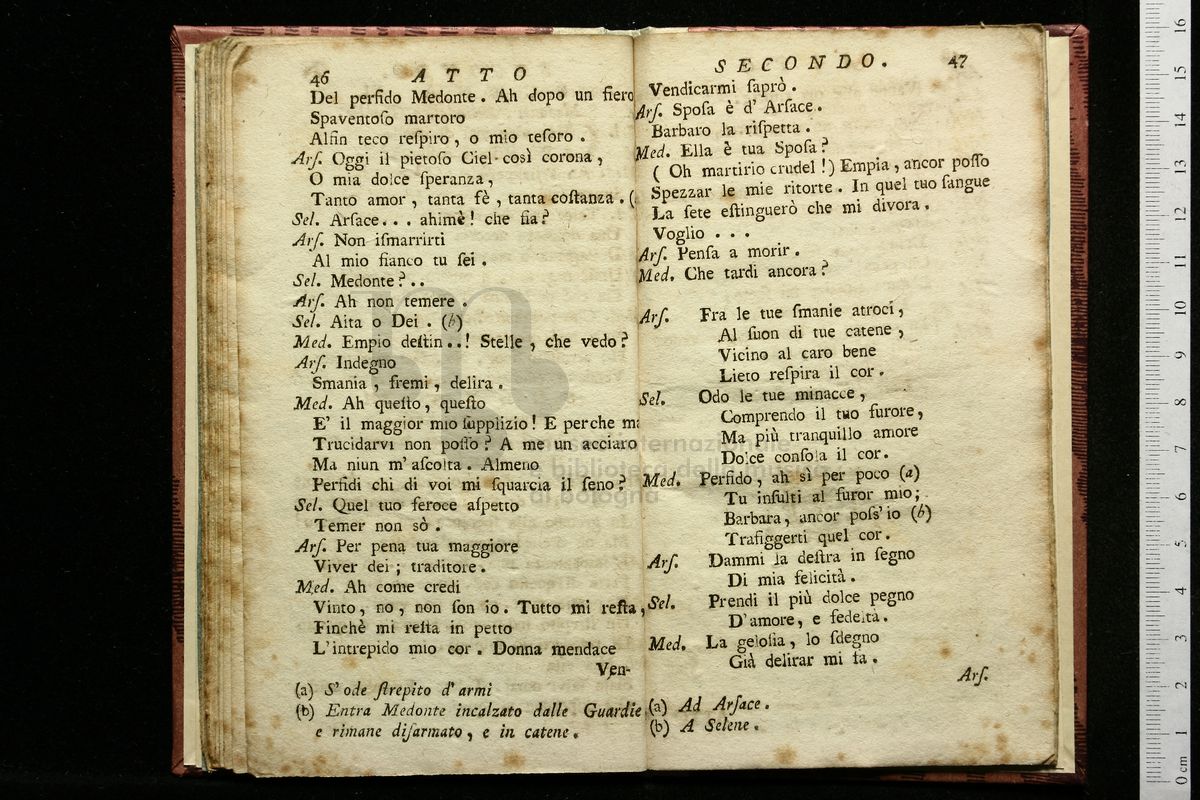 46 ATTO
Del perfido Medonte. Ah dopo un fiero
Spaventoſo martoro
Alfin teco reſpiro, o mio teſoro.
Arſ. Oggi il pietoſo Ciel così corona,
O mia dolce ſperanza,
Tanto amor, tanta fè, tanta coſtanza. (
Sel. Arſace... ahimè! che fia?
Arſ. Non iſmarrirti
Al mio fianco tu ſei.
Sel. Medonte?..
Arſ. Ah non temere.
Sel. Aita o Dei. (b)
Med. Empio deſtin..! Stelle, che vedo?
Arſ. Indegno
Smania, fremi, delira.
Med. Ah queſto, queſto
E' il maggior mio ſupplizio! E perche
Trucidarvi non poſſo? A me un acciaro
Ma niun m'aſcolta. Almeno
Perfidi chi di voi mi ſquarcia il ſeno?
Sel. Quel tuo feroce aſpetto
Temer non sò.
Arſ. Per pena tua maggiore
Viver dei; traditore.
Med. Ah come credi
Vinto, no, non ſon io. Tutto mi reſta,
Finchè mi reſta in petto
L'intrepido mio cor. Donna mendace
Ven-
(a) S'ode ſtrepito d'armi
(b) Entra Medonte incalzato dalle Guardie
e rimane diſarmato, e in catene.
SECONDO. 47
Vendicarmi ſaprò.
Arſ. Spoſa è d'Arſace.
Barbaro la riſpetta.
Med. Ella è tua Spoſa?
( Oh martirio crudel!) Empia, ancor poſſo
Spezzar le mie ritorte. In quel tuo ſangue
La ſete eſtinguerò che mi divora.
Voglio...
Arſ. Penſa a morir.
Med. Che tardi ancora?
Arſ. Fra le tue ſmanie atroci,
Al ſuon di tue catene,
Vicino al caro bene
Lieto reſpira il cor.
Sel. Odo le tue minacce,
Comprendo il tuo furore,
Ma più tranquillo amore
Dolce conſola il cor.
Med. Perfido, ah sì per poco (a)
Tu inſulti al furor mio;
Barbara, ancor poſs'io (b)
Trafiggerti quel cor.
Arſ. Dammi la deſtra in ſegno
Di mia felicità.
Sel. Prendi il più dolce pegno
D'amore, e fedeltà.
Med. La geloſia, lo ſdegno
Già delirar mi fa.
Arſ.
(a) Ad Arſace.
(b) A Selene.
museo internazionale
e biblioteca della musica
di bologna
0 cm 1 2 3 4 5 6 7 8 9 10 11 12 13 14 15 16